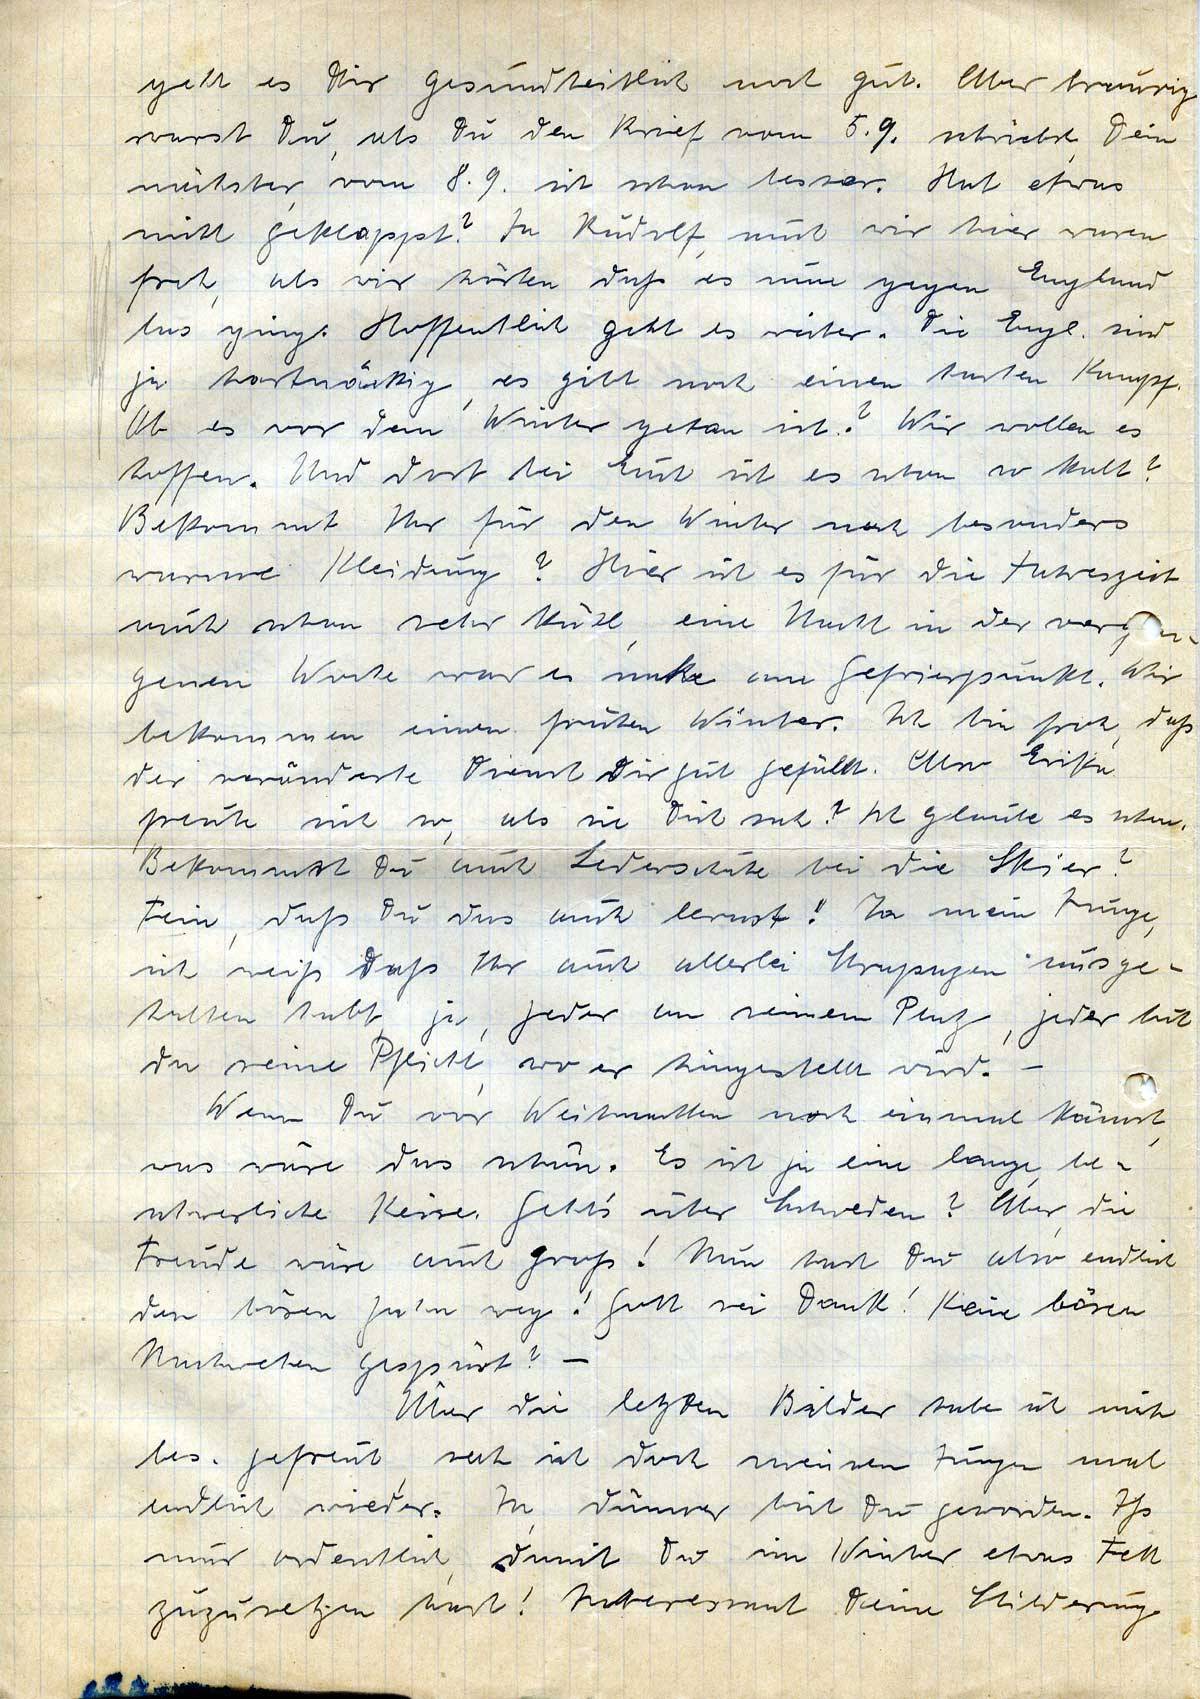 geht es Dir gesundheitlich noch gut. Aber traurig
warst Du, als Du den Brief vom 5.9. schriebst, Dein
nächster, vom 8.9. ist schon besser. Hat etwas
nicht geklappt? Ja Rudolf, auch wir hier waren
froh, als wir hörten daß es nun gegen England
los ging. Hoffentlich geht es weiter. Die Engl. sind
ja hartnäckig, es gibt noch einen harten Kampf.
Ob es vor dem Winter getan ist? Wir wollen es
hoffen. Und dort bei Euch ist es schon so kalt?
Bekommt Ihr für den Winter noch besonders
warme Kleidung? Hier ist es für die Jahreszeit
auch schon sehr kühl, eine Nacht in der vergan-
genen Woche war es nahe am Gefrierpunkt. Wir
bekommen einen frühen Winter. Ich bin froh, daß
der veränderte Dienst Dir gut gefällt. Also Erika
freute sich so, als sie Dich sah? Ich glaube es schon.
Bekommst Du auch Lederschuhe bei die Skier?
Fein, daß Du das auch lernst! Ja mein Junge,
ich weiß daß Ihr auch allerlei Strapazen ausge-
halten habt, ja, jeder an seinem Platz, jeder tut
da seine Pflicht, wo er hingestellt wird. –
Wenn Du vor Weihnachten noch einmal kämst,
was wäre das schön. Es ist ja eine lange, be-
schwerliche Reise. Geht's über Schweden? Aber die
Freude wäre auch groß! Nun hast Du also endlich
den bösen Zahn weg! Gott sei Dank! Keine bösen
Nachwehen gespürt? –
Über die letzten Bilder habe ich mich
bes. gefreut, sah ich doch meinen Jungen mal
endlich wieder. Ja, dünner bist Du geworden. Iß
nur ordentlich, damit Du im Winter etwas Fett
zuzusetzen hast! Interessant Deine Schilderung